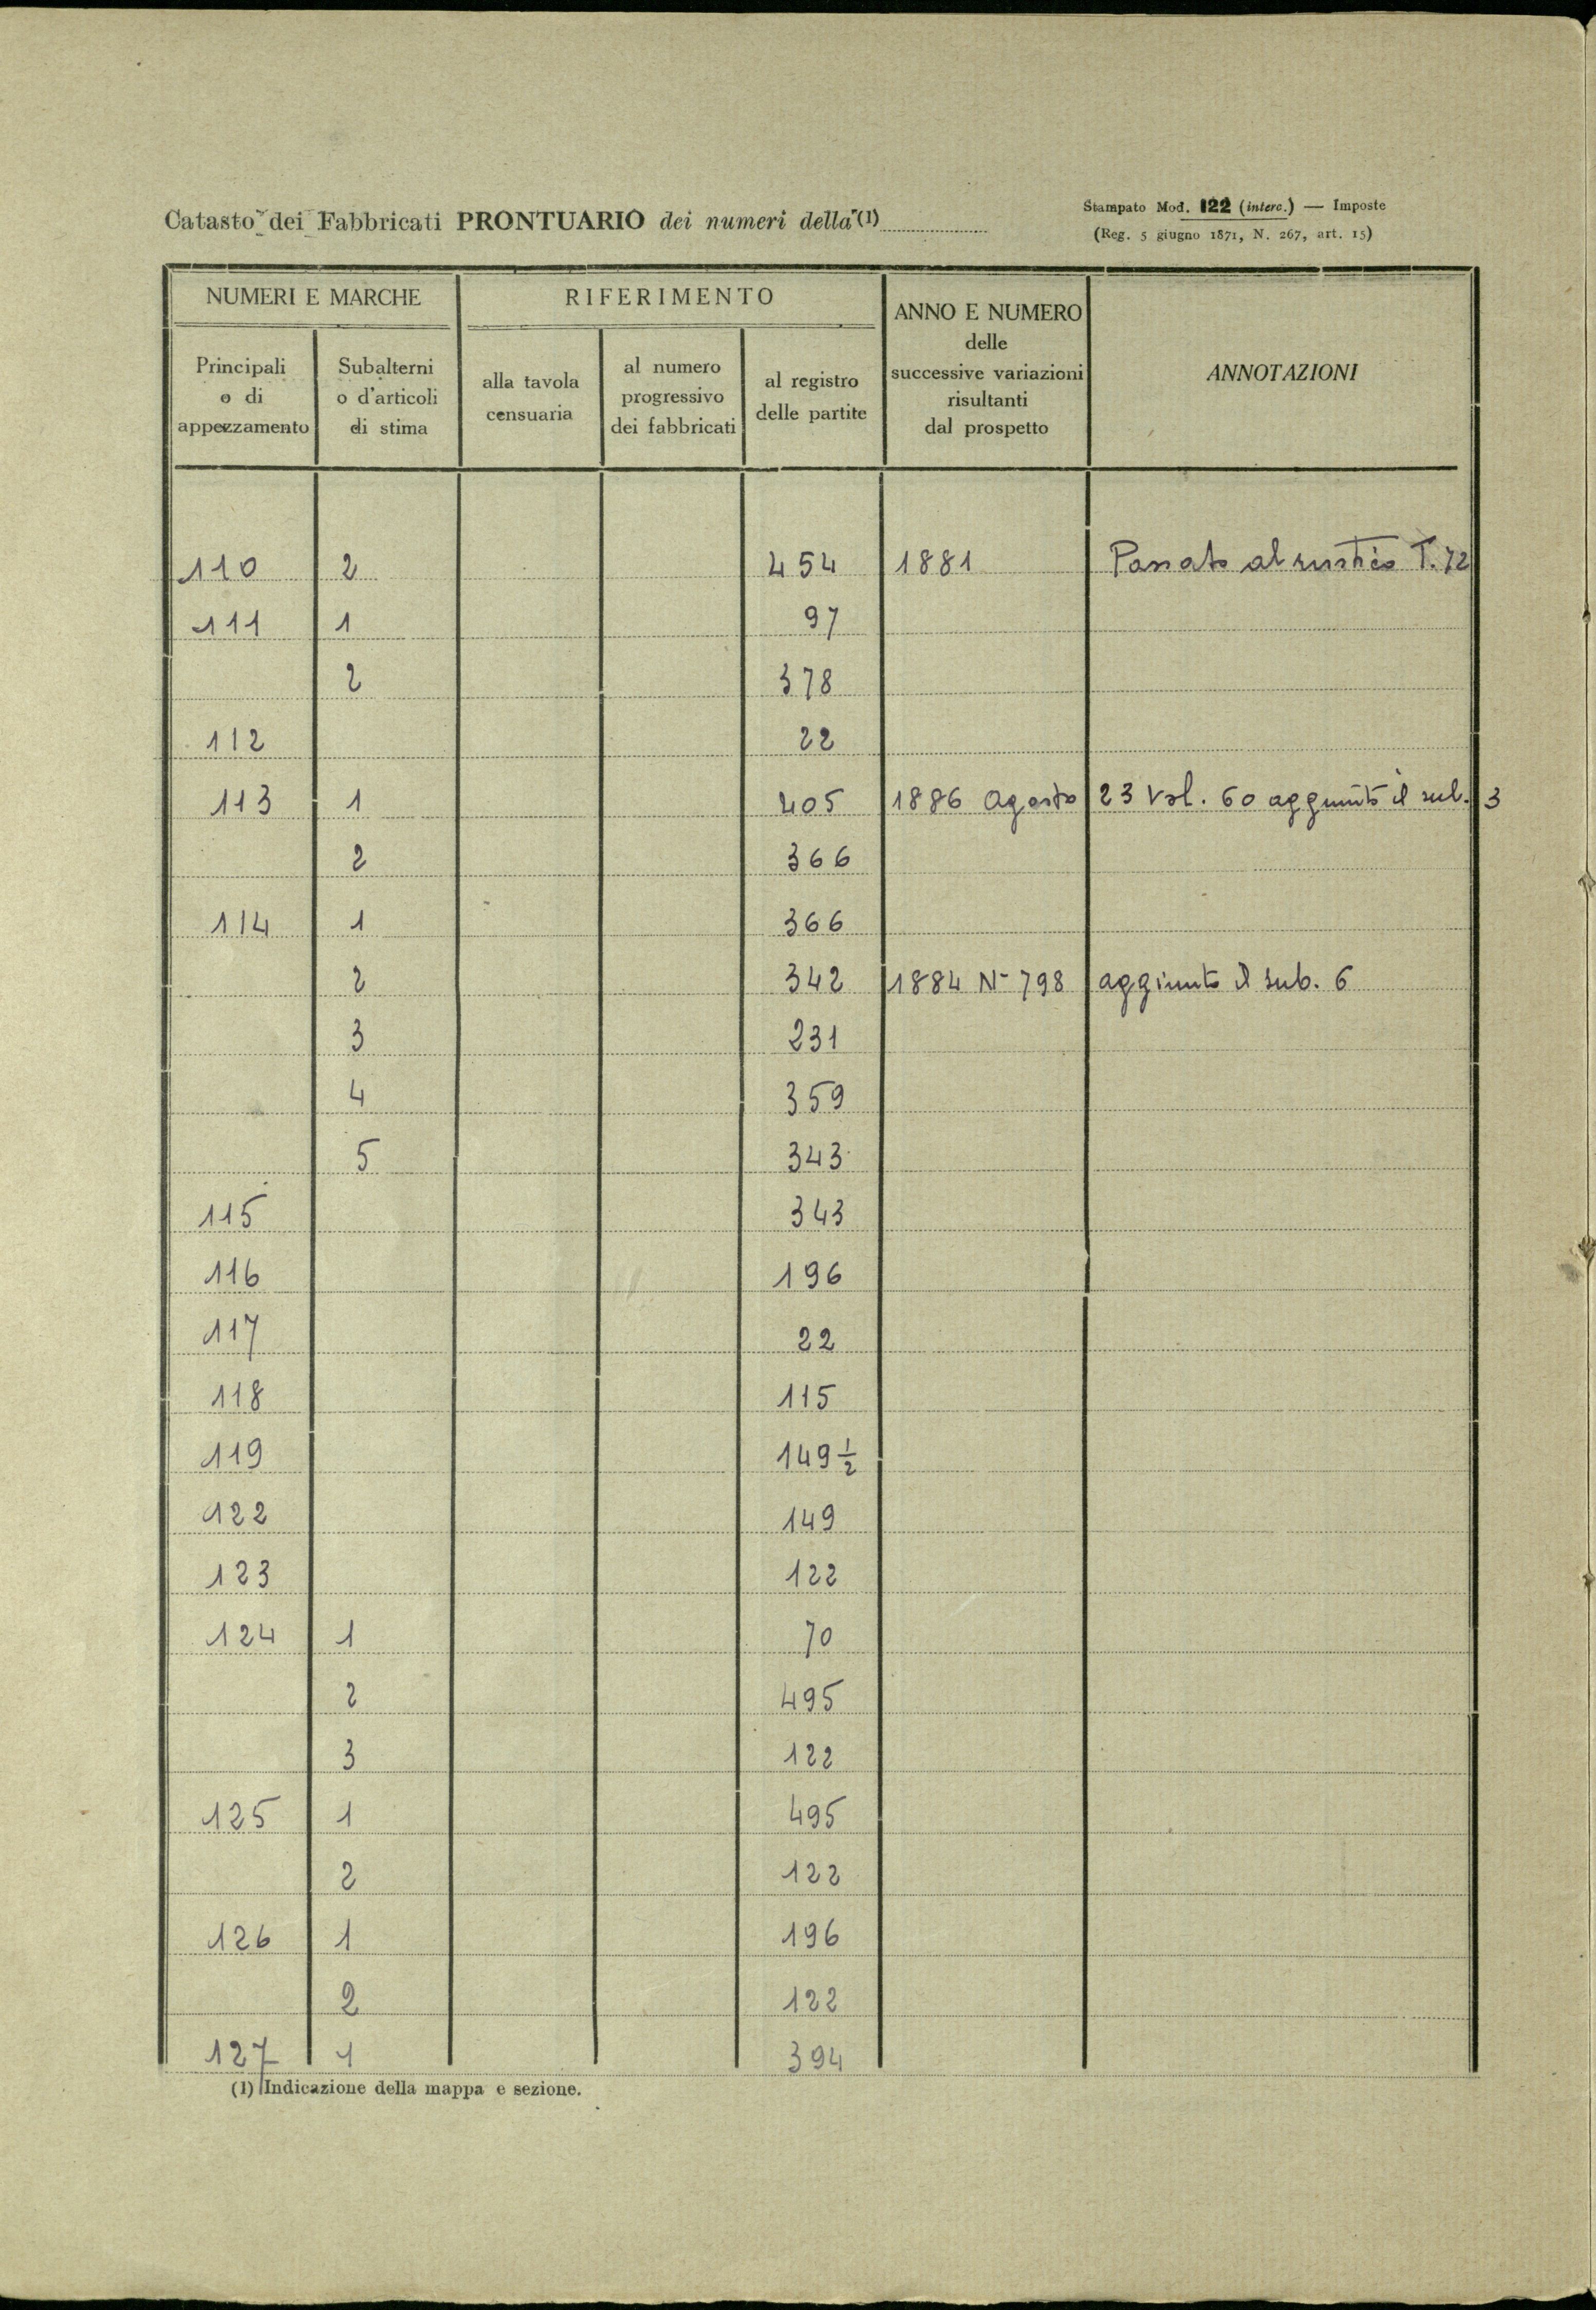 Catasto dei Fabbricati PRONTUARIO dei numeri della (1)
Stampato Mod. 122 (interc.) — Imposte
(Reg. 5 giugno 1871, N. 267, art. 15)
NUMERI E MARCHE
RIFERIMENTO
ANNO E NUMERO
delle
successive variazioni
risultanti
dal prospetto
ANNOTAZIONI
Principali
o di
appezzamento
Subalterni
o d'articoli
di stima
alla tavola
censuaria
al numero
progressivo
dei fabbricati
al registro
delle partite
110 2 454 1881 Passato al rustico T. 72
111 1 97
2 378
112 22
113 1 405 1886 Agosto 23 Vol. 60 aggiunto il sub. 3
2 366
114 1 366
2 342 1884 N- 798 aggiunto il sub. 6
3 231
4 359
5 343
115 343
116 196
117 22
118 115
119 149 1/2
122 149
123 122
124 1 70
2 495
3 122
125 1 495
2 122
126 1 196
2 122
127 1 394
(1) Indicazione della mappa e sezione.